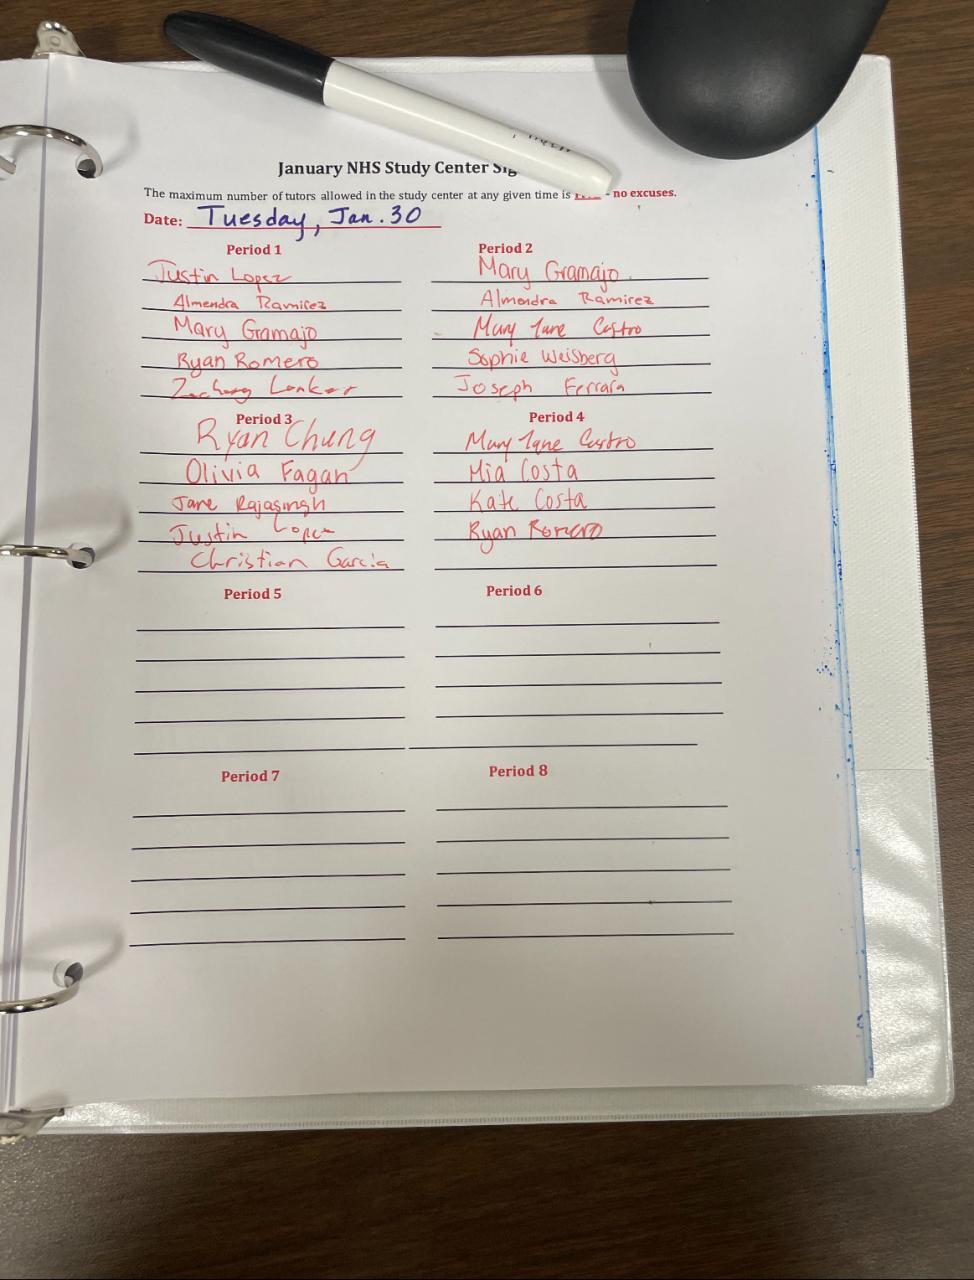 January NHS Study Center
The maximum number of tutors allowed in the study center at any given time is - no excuses.
Date: Tuesday, Jan. 30
Period 1
Justin Lopez
Almendra Ramirez
Mary Gramajo
Ryan Romero
Zachary
Period 2
Mary Gramajo
Almendra Ramirez
Mary Jane Castro
Sophie Weisberg
Joseph Ferrara
Period 3
Ryan Chung
Olivia Fagan
Jane Rajasingh
Justin Lopez
Christian Garcia
Period 4
Mary Jane Castro
Mia Costa
Kate Costa
Ryan Romero
Period 5
Period 6
Period 7
Period 8